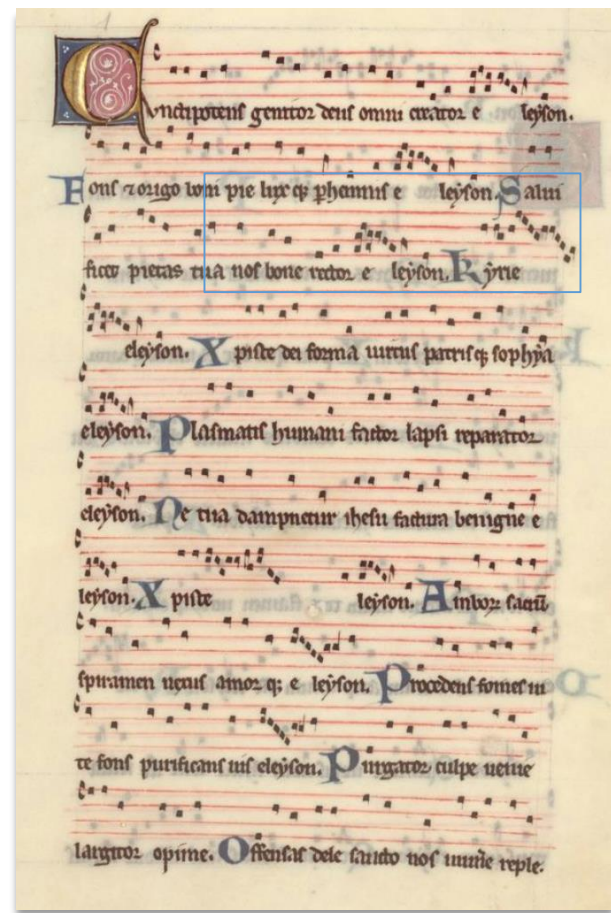 Cunctipotens genitor deus omni creator e leyson.
Fons ⁊ origo boni pie lux q; phennis e leyson. Salui
ficet pietas tua nos bone rector e leyson. Kyrie
eleyson. Xpiste dei forma uirtus patris q; sophya
eleyson. Plasmatis humani factor lapsi reparator
eleyson. Ne tua dampnetur ihesu factura benigne e
leyson. Xpiste leyson. Amborum sacrum
spiramen nexus amor q; e leyson. Procedens fomes in
te fons purificans uis eleyson. Purgator culpe uenie
largitor opime. Offensas dele sancto nos munere reple.